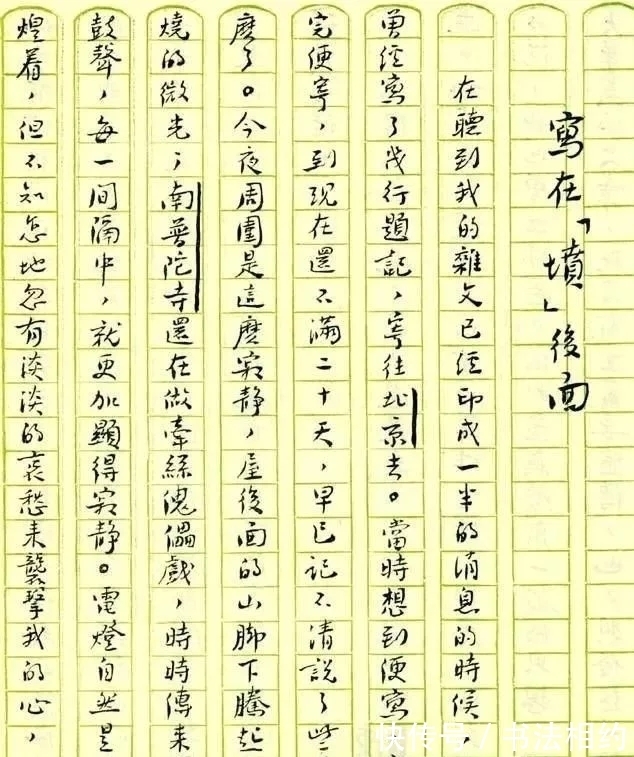 寫在「墳」後面
在聽到我的雜文已經印成一半的消息的時候，
曾經寫了幾行題記，寄往北京去。當時想到便寫
完便寄，到現在還不滿二十天，早已記不清說了些
麽了。今夜周圍是這麽寂靜，屋後面的山脚下騰起
燒的微光；南普陀寺還在做牽絲傀儡戲，時時傳来
鼓聲，每一間隔中，就更加顯得寂靜。電燈自然是
煌着，但不知怎地忽有淡淡的哀愁来襲擊我的心，
快传号 / 书法相约